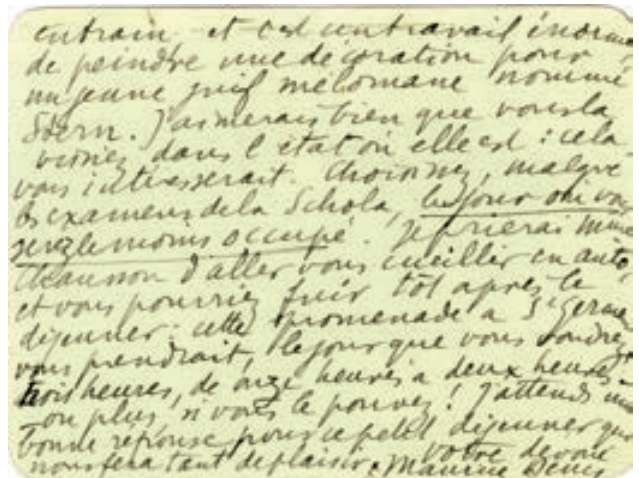 entrain et c'est un travail énorme
de peindre une décoration pour
un jeune juif mélomane nommé
Stern. J'aimerais bien que vous la
voyiez dans l'état où elle est : cela
vous intéresserait. Choisissez, malgré
les examens de la Schola, le jour où vous
serez le moins occupé. Je prierai Mme
Chausson d'aller vous cueillir en auto,
et vous pourriez fuir tôt après le
déjeuner : cette promenade à St Germain
vous prendrait, le jour que vous voudrez
trois heures, de onze heures à deux heures -
ou plus si vous le pouvez ! J'attends une
bonne réponse pour ce petit déjeuner qui
nous fera tant de plaisir. votre dévoué
Maurice Denis